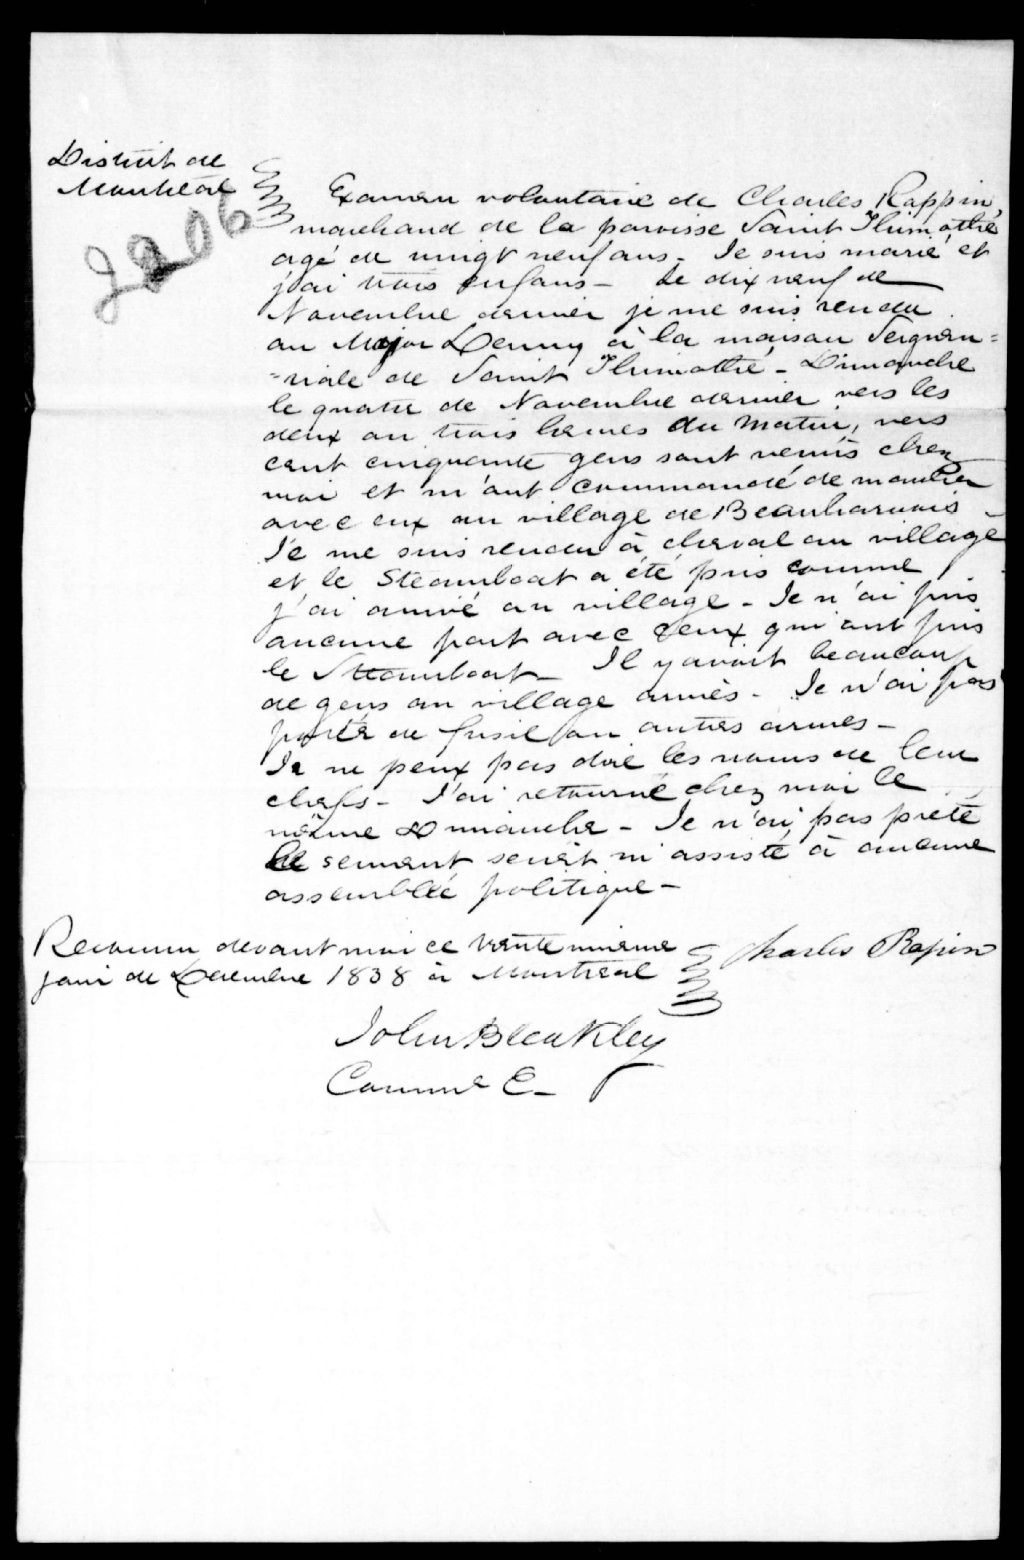 District de
Montréal
2206
Examen volontaire de Charles Rappin,
marchand de la paroisse Saint Thimothée
agé de vingt neuf ans - Je suis marié et
j'ai trois enfans - Le dix neuf de
Novembre dernier je me suis rendu
au Major Denny à la maison Seigneu=
=riale de Saint Thimothée - Dimanche
le quatre de Novembre dernier vers les
deux ou trois heures du matin, vers
cent cinquante gens sont venus chez
moi et m'ont commandé de marcher
avec eux au village de Beauharnois -
Je me suis rendu à cheval au village
et le Steamboat a été pris comme
j'ai arrivé au village - Je n'ai pris
aucune part avec ceux qui ont pris
le Steamboat - Il y avoit beaucoup
de gens au village armés - Je n'ai pas
porté de fusil ou autres armes -
Je ne peux pas dire les noms de leur
chefs - J'ai retourné chez moi le
même Dimanche - Je n'ai pas preté
le serment secret ni assisté à aucune
assemblée politique -
Reconnu devant moi ce trente unieme
jour de Decembre 1838 à Montreal
Charles Rapin
John Bleakley
Comme E-